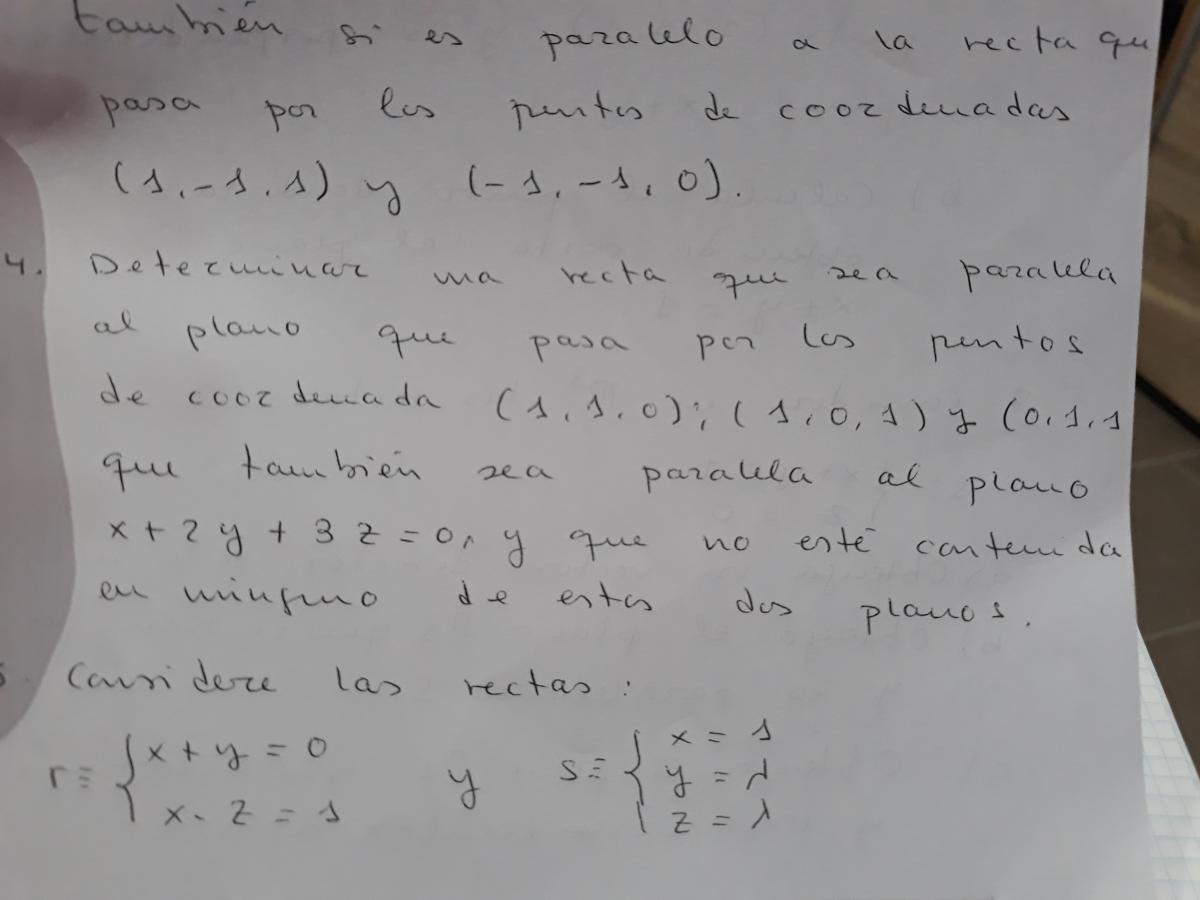 también si es paralelo a la recta qu
pasa por los puntos de coordenadas
(1,-1,1) y (-1,-1,0).
4. Determinar una recta que sea paralela
al plano que pasa por los puntos
de coordenada (1,1,0); (1,0,1) y (0,1,1
que también sea paralela al plano
x+2y+3z=0, y que no esté contenida
en ninguno de estos dos planos.
Considere las rectas:
r≡ { x+y=0 y s≡ { x=1
x-z=1 y=λ
z=λ